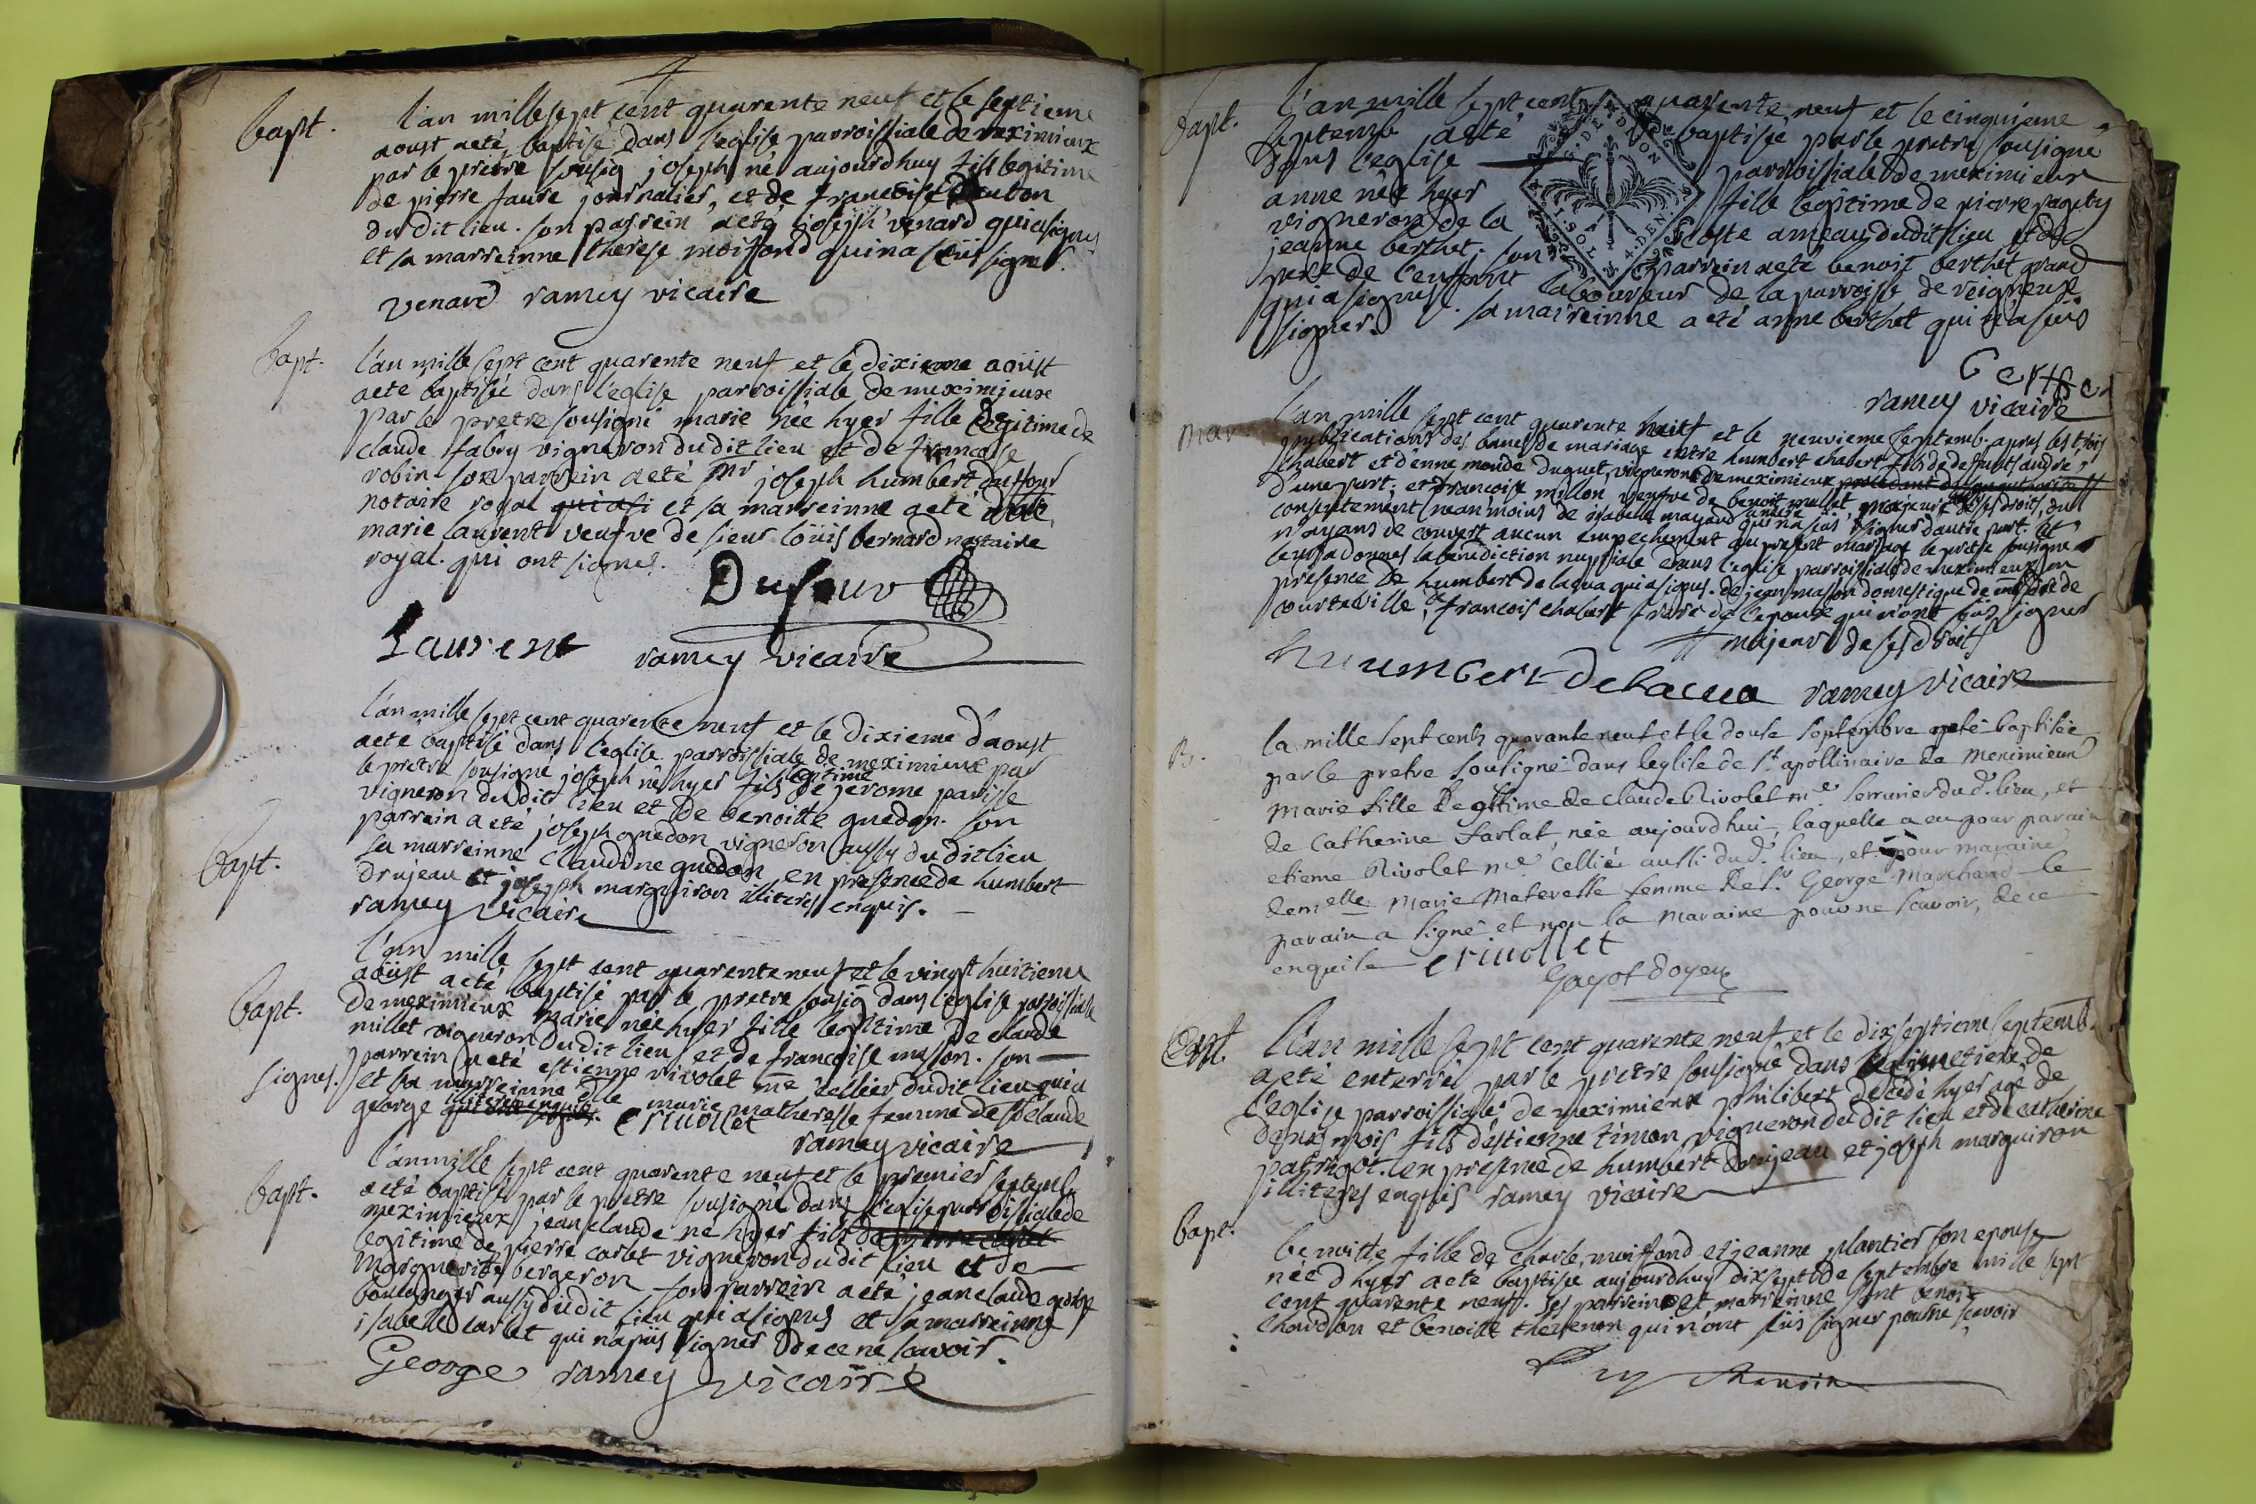 bapt. l'an mille sept cent quarente neuf et le septieme
aoust aeté baptisé dans l'eglise parroissiale de meximieux
par le pretre sousig joseph né aujourdhuy fils legitime
de pierre faure journalier, et de francoise
du dit lieu. son parrein aeté joseph venard qui a signé
et sa marreinne therese moissond qui na sçeu signer.
venard ramey vicaire
bapt. l'an mille sept cent quarente neuf et le dixieme aoüst
aeté baptisée dans l'eglise parroissiale de meximieux
par le pretre sousigné marie née hyer fille legitime de
claude fabry vigneron du dit lieu et de francoise
robin son parrein aeté mr joseph humbert duffour
notaire royal et sa marreinne aeté dlle
marie laurent veufve de sieur loüis bernard nottaire
royal. qui ont signés.
Dufour
Laurent ramey vicaire
l'an mille sept cent quarente neuf et le dixieme d'aoust
aeté baptisé dans l'eglise parroissiale de meximieux par
le pretre sousigné joseph né hyer fils legitime de jerome parisse
vigneron du dit lieu et de benoitte guedon. son
parrein aeté joseph guedon vigneron aussy du dit lieu
bapt. sa marreinne claudine guedon en presence de humbert
drujeau et joseph marguiron illiteres enquis.
ramey vicaire
l'an mille sept cent quarente neuf et le vingt huitieme
aoüst aeté baptisé par le pretre sousig dans l'eglise parroissiale
bapt. de meximieux marie née hyer fille legitime de claude
millet vigneron du dit lieu et de francoise masson. son
parrein aeté estienne rivolet me cellier du dit lieu qui a
signé. et sa marreinne dlle marie matheresse femme de sr claude
george illiteree enquise. erivollet
ramey vicaire
l'an mille sept cent quarente neuf et le premier septemb
bapt. aeté baptisé par le pretre sousigné dans l'eglise parroissiale de
meximieux jean claude né hyer fils de pierre carlet
legitime de pierre carlet vigneron du dit lieu et de
marguerite bergeron son parrein aeté jean claude george
boulanger aussy du dit lieu qui a signés et sa marreinne
isabelle carlet qui na sçus signer de ce ne savoir.
George ramey vicaire
bapt. l'an mille sept cent quarente neuf et le cinquieme
septemb aeté baptisée par le pretre sousigne
dans l'eglise parroissiale de meximieux
anne née hyer fille legitime de pierre
vigneron de la coste ameau du dit lieu et de
jeanne berthet. son parrein aeté benoit berthet grand
pere de l'enfant laboureur de la parroisse de
qui a signés. sa marreinne aeté anne berthet qui n'a sçus
signer.
ramey vicaire
mar. l'an mille sept cent quarente neuf et le neuvieme septemb. apres les trois
publications des bancs de mariage entre humbert chabert fils de deffunts andre
chabert et d'enne monde duguet, vigneron de meximieux
d'une part, et francoise millon veufve de benoit millet, majeure de ses droits, du
consentement neanmoins de isabeau mayaud sa mere qui na sçus signer dautre part. et
n'ayans de couvert aucun empechement au present mariage le pretre sousigné
leur a donnés la benediction nuptiale dans l'eglise parroissiale de meximieux en
presence de humbert de lacua qui a signés. de jean masson domestique de de
courteville, francois chabert frere de l'epoux qui n'ont sçus signer
majeur de ses droits
humbert delacua ramey vicaire
B. la mille sept cents quarante neuf et le douse septembre aeté baptisée
par le pretre sousigné dans leglise de st apollinaire de meximieux
marie fille legitime de claude Rivolet me serrurier du d. lieu, et
de catherine farlat, née aujourdhui, laquelle a eu pour parain
etieme Rivolet me cellié aussi du d. lieu, et pour maraine
demelle marie materesse femme de sr george marchand le
parain a signé et non la maraine pour ne scavoir, de ce
enquise erivollet
Gayot doyen
Ent. L'an mille sept cent quarente neuf et le dix septieme septemb.
aeté enterré par le pretre sousigné dans le cimetiere de
l'eglise parroissiale de meximieux philibert decedé hyer agé de
deux mois fils d'estienne timon vigneron du dit lieu et de catherine
patrigot. en presence de humbert drujeau et joseph marguiron
illiteres enquis ramey vicaire
bapt. benoitte fille de charle moissond et jeanne plantier son epouse
née d'hyer aeté baptisée aujourdhuy dix sept de septembre mille sept
cent quarente neuf. ses parrein et marreinne sont benoit
chardon et benoitte thevenon qui n'ont sçus signer pour ne scavoir